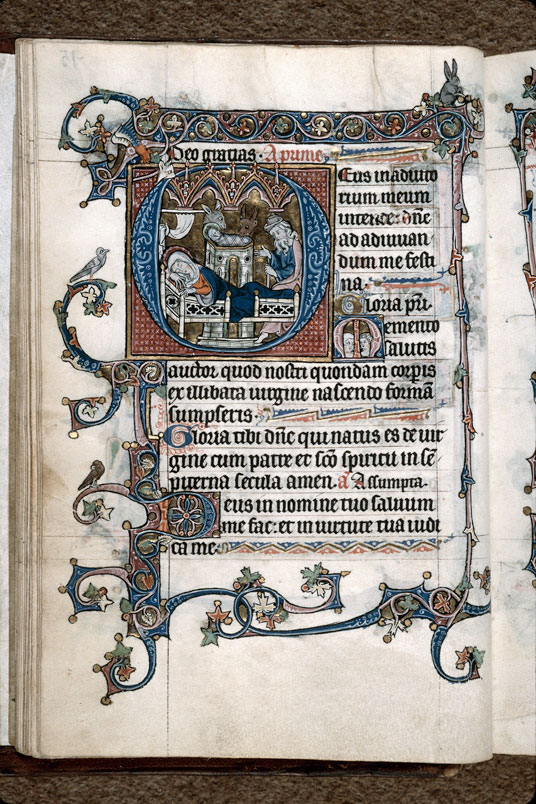 Deo gracias. A prime
Eus in adiuto
rium meum
intende: dñe
ad adiuuan
dum me festi
na. Gloria pri:
Memento
salutis
auctor quod nostri quondam corpis
ex illibata uirgine nascendo formā
sumpseris.
Gloria tibi dñe qui natus es de uir
gine cum patre et sc̄o spiritu in sē
piterna secula amen. a Assumpta.
Deus in nomine tuo saluum
me fac: et in uirtute tua iudi
ca me.